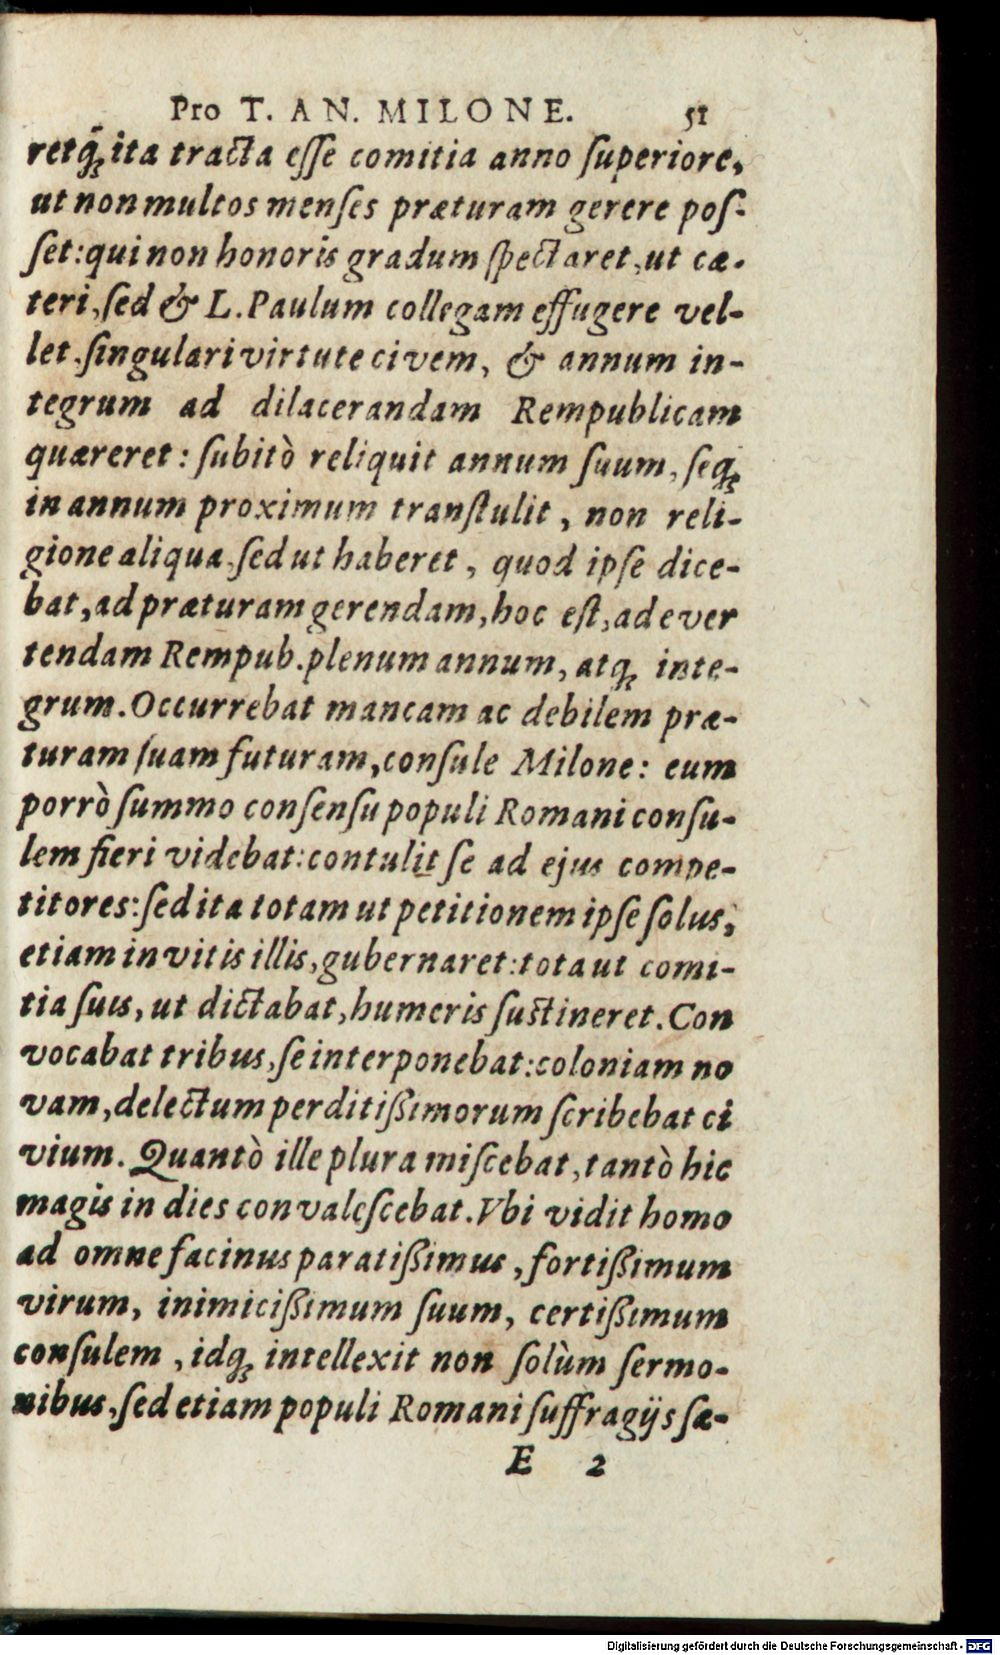 Pro T. AN. MILONE. 51
retq́; ita tracta esse comitia anno superiore,
ut non multos menses præturam gerere pos-
set: qui non honoris gradum spectaret, ut cæ-
teri, sed & L. Paulum collegam effugere vel-
let, singulari virtute civem, & annum in-
tegrum ad dilacerandam Rempublicam
quæreret: subitò reliquit annum suum, seq;
in annum proximum transtulit, non reli-
gione aliqua, sed ut haberet, quod ipse dice-
bat, ad præturam gerendam, hoc est, ad ever
tendam Rempub. plenum annum, atq; inte-
grum. Occurrebat mancam ac debilem præ-
turam suam futuram, consule Milone: eum
porrò summo consensu populi Romani consu-
lem fieri videbat: contulit se ad ejus compe-
titores: sed ita totam ut petitionem ipse solus,
etiam invitis illis, gubernaret: tota ut comi-
tia suis, ut dictabat, humeris sustineret. Con
vocabat tribus, se interponebat: coloniam no
vam, delectum perditißimorum scribebat ci
vium. Quantò ille plura miscebat, tantò hic
magis in dies convalescebat. Vbi vidit homo
ad omne facinus paratißimus, fortißimum
virum, inimicißimum suum, certißimum
consulem, idq; intellexit non solùm sermo-
nibus, sed etiam populi Romani suffragijs sæ-
E 2
Digitalisierung gefördert durch die Deutsche Forschungsgemeinschaft - DFG